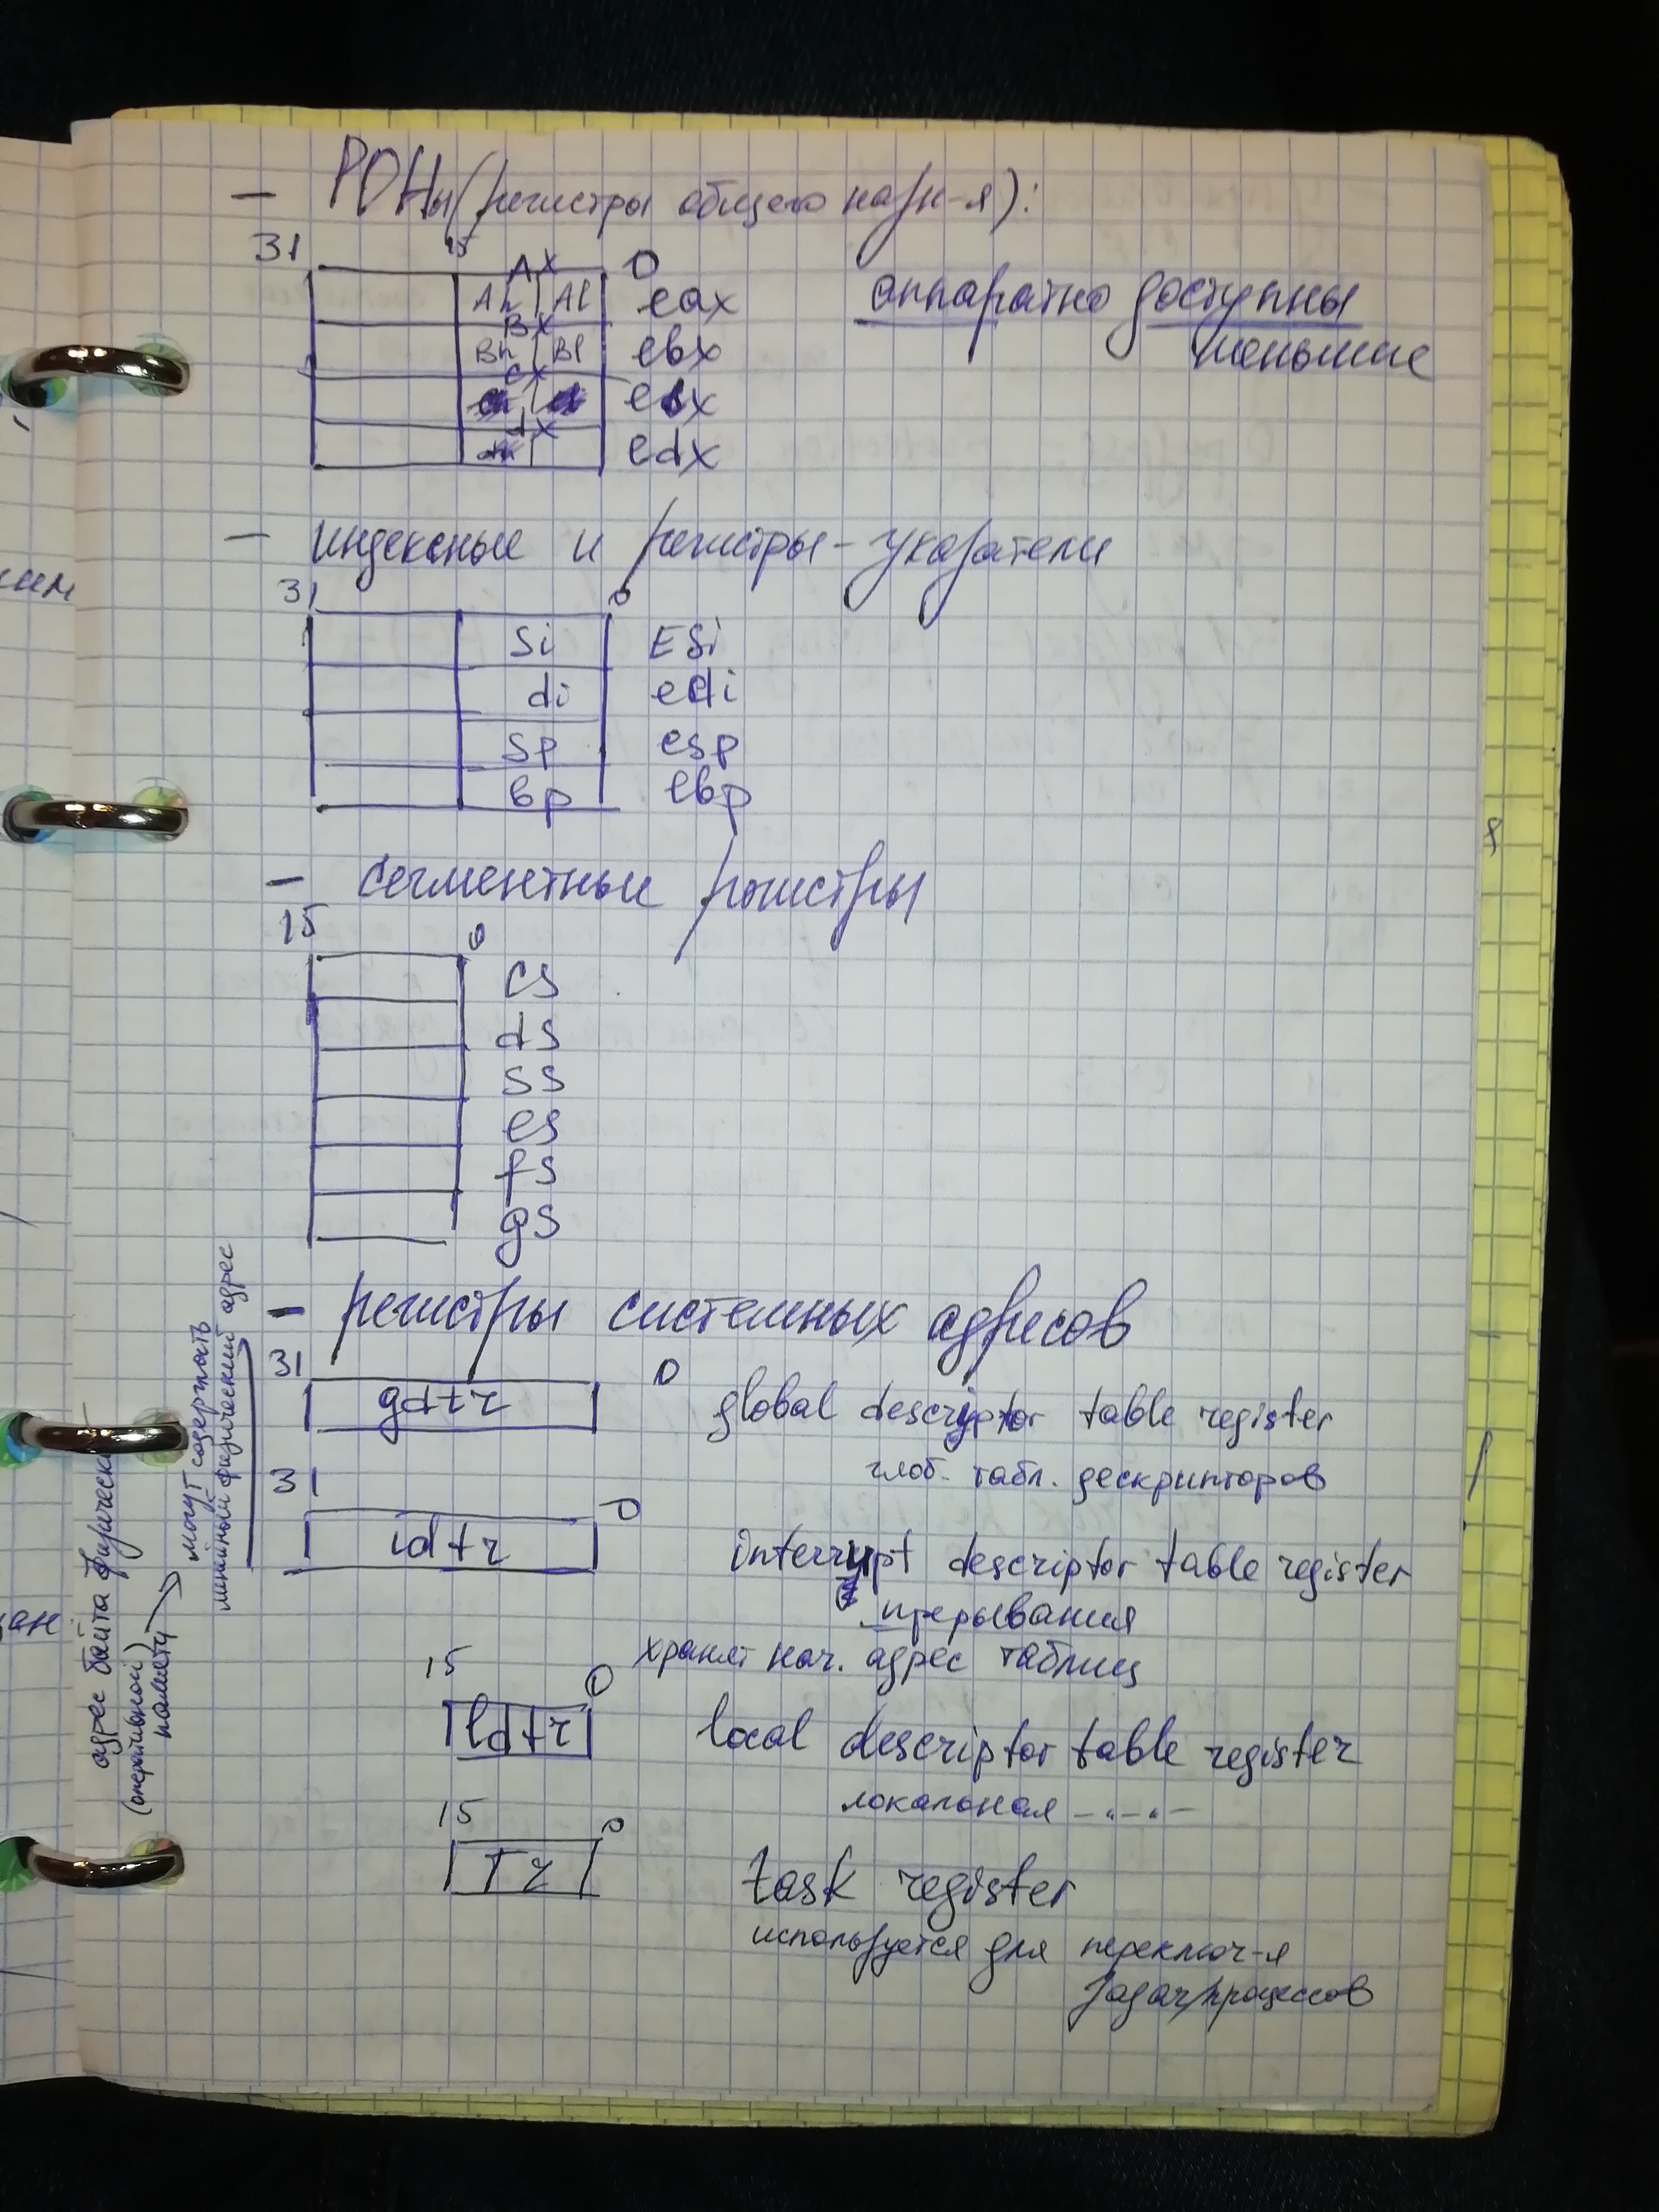 — РОНы (регистры общего назн-я):
31 15 0
Ax
Ah Al eax аппаратно доступны
Bx
Bh Bl ebx меньшие
cx
ecx
dx
edx
— индексные и регистры-указатели
31 0
Si ESi
di edi
Sp esp
bp ebp
— сегментные регистры
15 0
cs
ds
ss
es
fs
gs
— регистры системных адресов
31 0
gdtr global descriptor table register
глоб. табл. дескрипторов
31 0
idtr interrupt descriptor table register
прерывания
хранят нач. адрес таблиц
15 0
ldtr local descriptor table register
локальная —"—"—
15 0
Tr task register
используется для переключ-я
задач/процессов
адрес байта физической
(оперативной)
памяти
могут содержать
линейный физический адрес